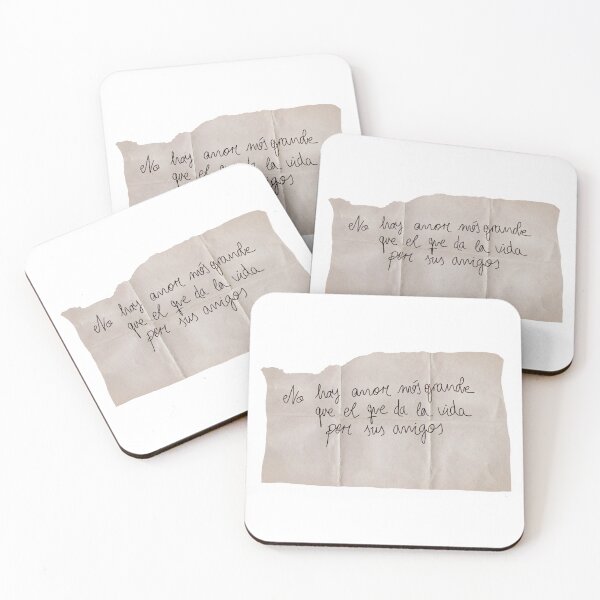 No hay amor más grande
que el da la vida
No hay amor más grande
que el que da la vida
por sus amigos
No hay amor más grande
que el que da la vida
por sus amigos
No hay amor más grande
que el que da la vida
por sus amigos